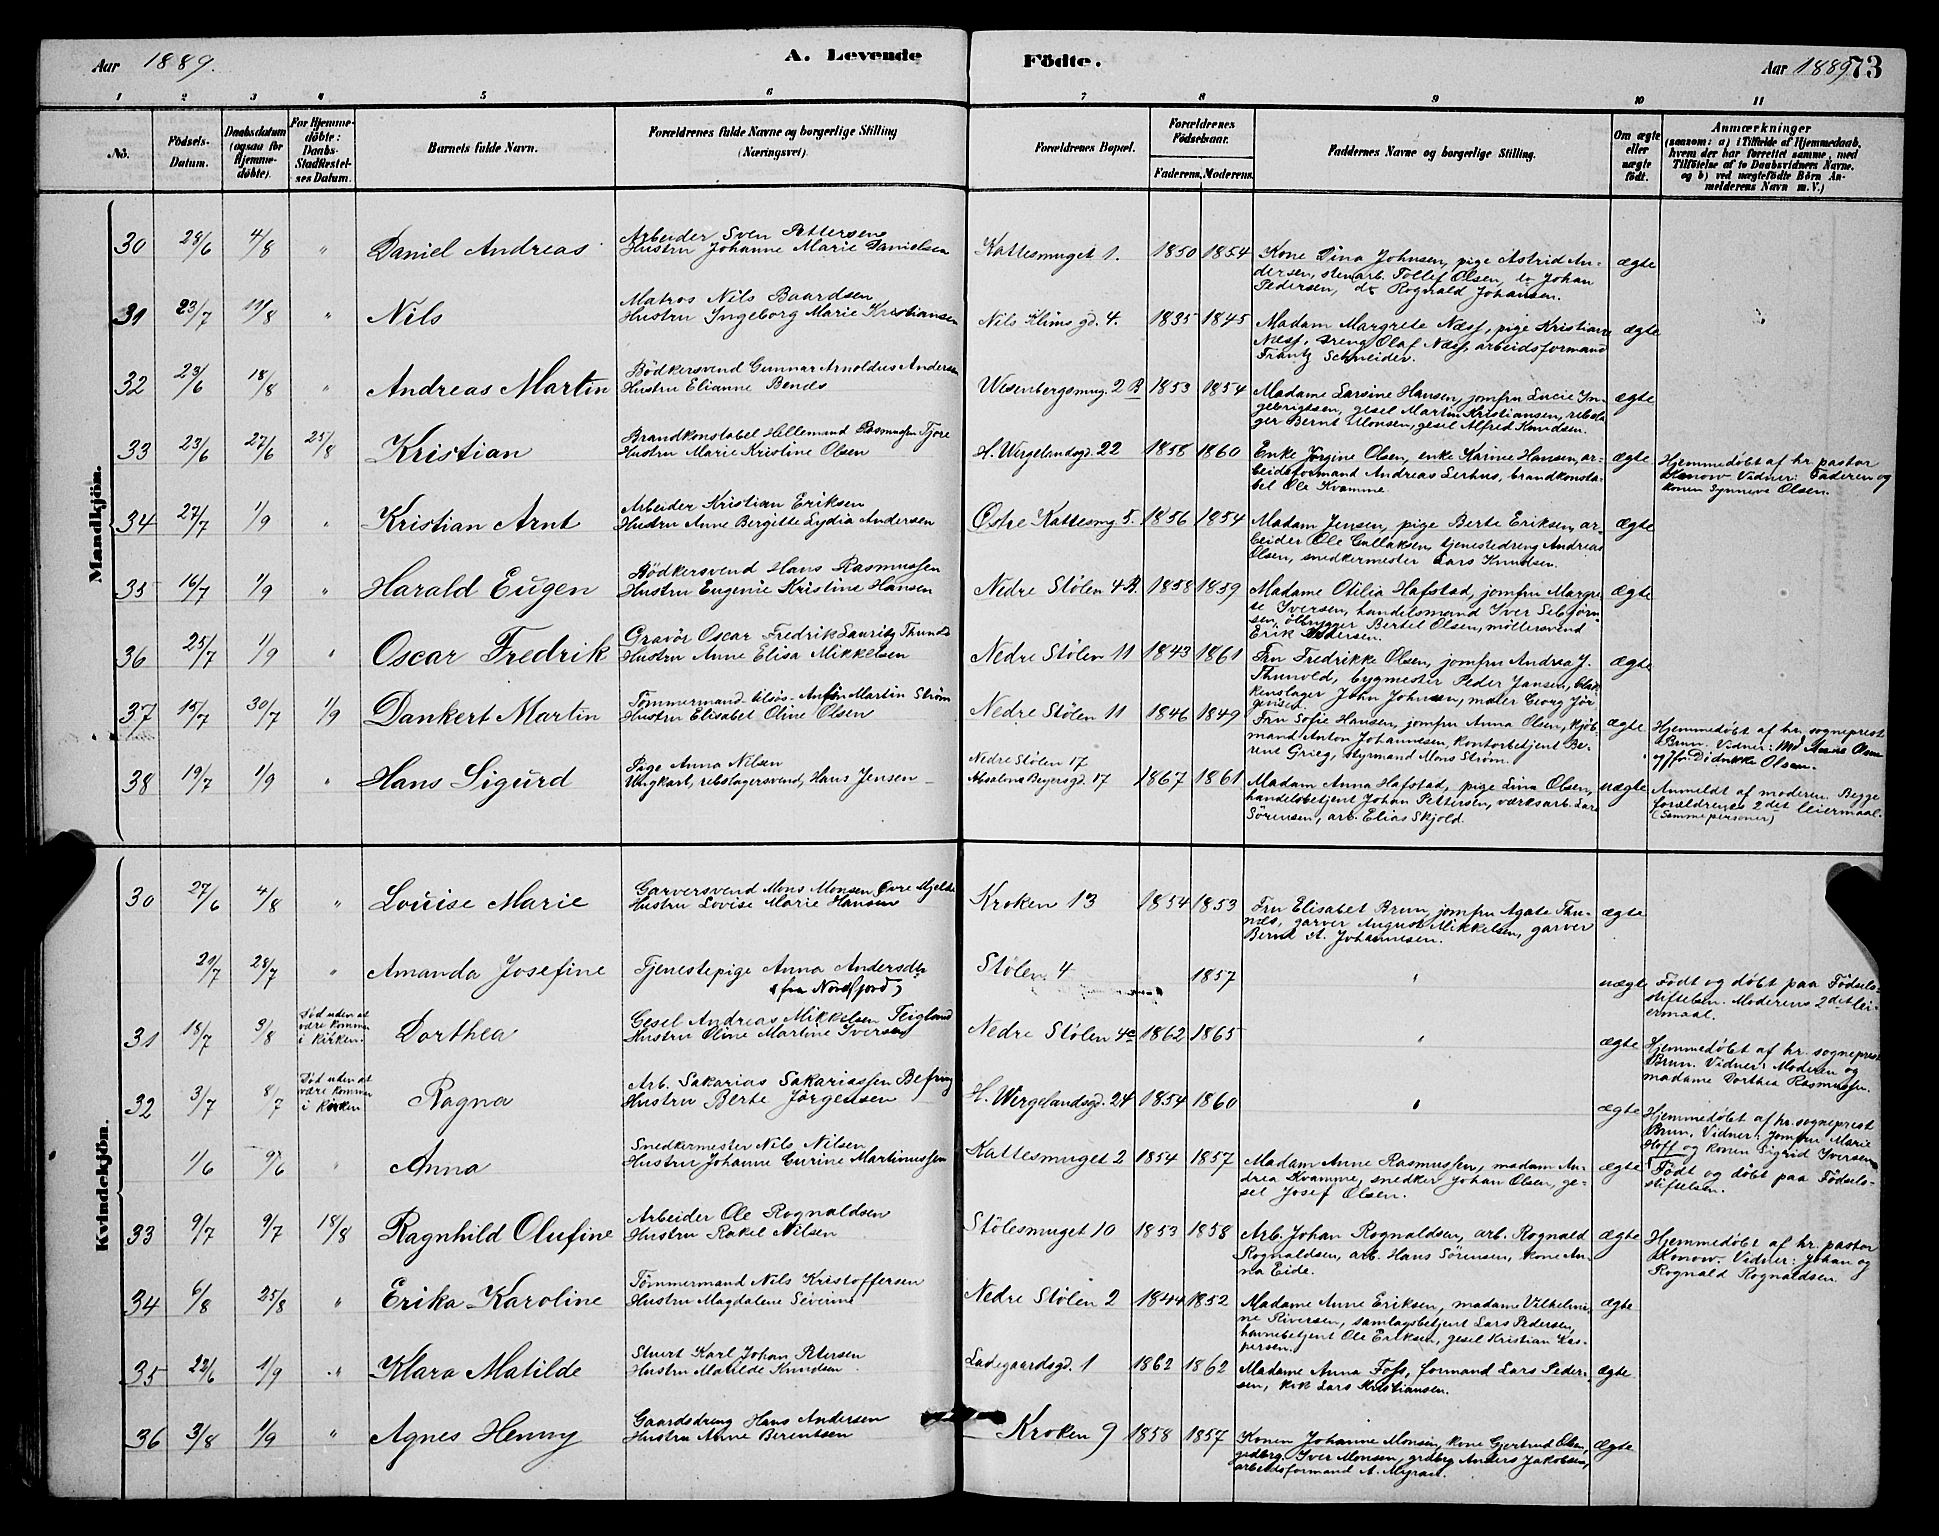 Aar 1889. A. Levende Födte. Aar 1889 73
1 2 3 4 5 6 7 8 9 10 11
No. Födsels-Datum. Daabsdatum (ogsaa for Hjemmedöbte). For Hjemmedöbte: Daabs-Stadfestelses Datum. Barnets fulde Navn. Forældrenes fulde Navne og borgerlige Stilling (Næringsvei). Forældrenes Bopæl. Forældrenes Födselsaar. Faderens. Moderens. Faddernes Navne og borgerlige Stilling. Om ægte eller uægte födt. Anmærkninger (saasom: a) i Tilfælde af Hjemmedaab, hvem der har forrettet samme, med Tilföielse af to Daabsvidners Navne. og b) ved uægtefödte Börn Anmelderens Navn m. V.)
Mandkjön.
30 28/6 4/8 " Daniel Andreas
Arbeider Sven Pettersen
Hustru Johanne Marie Danielsen
Kattesmuget 1. 1850 1854
Kone Dina Johnsen, pige Astrid An-
dersen, stenarb. Tollef Olsen, do Johan
Pedersen, do Rognald Johansen.
ægte
31 23/7 11/8 " Nils
Matros Nils Baardsen
Hustru Ingeborg Marie Kristiansen
Nils Klims gd. 4. 1835 1845
Madam Margrete Næss, pige Kristiane
Næss, dreng Olaf Næss, arbeidsformand
Frantz Schneider.
ægte
32 23/6 18/8 " Andreas Martin
Bödkersvend Gunnar Arnoldus Andersen
Hustru Elianne Bends
Wesenbergsmug. 2 B 1853 1854
Madame Larsine Hansen, jomfru Lucie In-
gebrigtsen, gesel Martin Kristiansen, rebsla-
ger Bernt Monsen, gesel Alfred Knudsen.
ægte
33 23/6 27/6 25/8 Kristian
Brandkonstabel Hellemand Rasmussen Tjore
Hustru Marie Kristine Olsen
H. Wergelandsgd. 22 1858 1860
Enke Jörgine Olsen, enke Karine Hansen, ar-
beidsformand Andreas Lerhus, brandkonsta-
bel Ole Kvamme.
ægte
Hjemmedöbt af hr. pastor
Konow. Vidner: Faderen og
konen Synneve Olsen.
34 27/7 1/9 " Kristian Arnt
Arbeider Kristian Eriksen
Hustru Anne Bergitte Lydia Andersen
Östre Kattesmg 5. 1856 1854
Madam Jensen, pige Berte Eriksen, ar-
beider Ole Gullaksen, tjenestedreng Andreas
Olsen, snedkermester Lars Knudsen.
ægte
35 16/7 1/9 " Harald Eugen
Bödkersvend Hans Rasmussen
Hustru Eugenie Kristine Hansen
Nedre Stölen 4 B. 1858 1859
Madame Otilia Hafstad, jomfru Margre-
te Iversen, handelsmand Iver Sebjörn-
sen, ölbrygger Bertel Olsen, möllersvend
Erik Pedersen.
ægte
36 25/7 1/9 " Oscar Fredrik
Gravör Oscar Fredrik Lauritz Thunold
Hustru Anne Elisa Mikkelsen
Nedre Stölen 11 1843 1861
Fru Fredrikke Olsen, jomfru Andrea J.
Thunold, bygmester Peder Jansen, blik-
kenslager John Johnsen, maler Georg Jör
gensen.
ægte
37 15/7 30/7 1/9 Dankert Martin
Tömmermand Anfin Martin Ström
Hustru Elisabet Oline Olsen
Nedre Stölen 11 1846 1849
Fru Sofie Hansen, jomfru Anna Olsen, kjöb-
mand Anton Johannesen, kontorbetjent Be-
rent Grieg, styrmand Mons Ström.
ægte
Hjemmedöbt af hr. sogneprest
Brun. Vidner: Md. Anne Olsen
og jfr. Didrikke Olsen.
38 19/7 1/9 " Hans Sigurd
Pige Anna Nilsen
Ungkarl, rebslagersvend, Hans Jensen
Nedre Stölen 17
Absalons Beyersgd. 17 1867 1861
Madam Anna Hafstad, pige Lina Olsen,
handelsbetjent Johan Pettersen, værksarb. Lars
Sörensen, arb. Elias Skjold.
uægte
Anmeldt af moderen. Begge
forældrenes 2det leiermaal.
(Samme personer)
Kvindekjön.
30 27/6 4/8 " Louise Marie
Garversvend Mons Monsen Övre Mjelde
Hustru Lovise Marie Hansen
Kroken 13 1854 1853
Fru Elisabet Brun, jomfru Agate Thu-
næs, garver August Mikkelsen, garver
Bernt A. Johannesen.
ægte
29/7 28/7 " Amanda Josefine
Tjenestepige Anna Andersdtr
(fra Nordfjord)
Stölen 4 1857 "
uægte
Födt og döbt paa Födsels-
stiftelsen. Moderens 2det lei-
ermaal.
31 18/7 3/8 Död uden at være kommen i kirken. Dorthea
Gesel Andreas Mikkelsen Teigland
Hustru Oline Martine Iversen
Nedre Stölen 4a 1862 1865 "
ægte
Hjemmedöbt af hr. sogneprest
Brun. Vidner: Moderen og
madame Dorthea Rasmussen.
32 3/7 8/7 Död uden at være kommen i kirken. Ragna
Arb. Sakarias Sakariassen Befring
Hustru Berte Jörgensen
H. Wergelandsgd. 24 1854 1860 "
ægte
Hjemmedöbt af hr. sogneprest
Brun. Vidner: jomfru Marie
Hoff og konen Sigrid Iversen
1/6 9/6 " Anna
Snedkermester Nils Nilsen
Hustru Johanne Gurine Martinussen
Kattesmuget 2 1854 1857
Madam Anne Rasmussen, madam An-
drea Kvamme, snedker Johan Olsen, ge-
sel Josef Olsen.
ægte
Födt og döbt paa Födsels-
stiftelsen.
33 9/7 9/7 18/8 Ragnhild Olufine
Arbeider Ole Rognaldsen
Hustru Rakel Nilsen
Stölesmuget 10 1853 1858
Arb. Johan Rognaldsen, arb. Rognald
Rognaldsen, arb. Hans Sörensen, kone An-
na Eide.
ægte
Hjemmedöbt af hr. pastor
Konow. Vidner: Johan og
Rognald Rognaldsen.
34 6/8 25/8 " Erika Karoline
Tömmermand Nils Kristoffersen
Hustru Magdalene Severine
Nedre Stölen 2 1844 1852
Madame Anne Eriksen, madame Vilhelmi-
ne Riversen, samlagsbetjent Lars Pedersen,
havnebetjent Ole Eriksen, gesel Kristian Kas-
persen.
ægte
35 22/6 1/9 " Klara Matilde
Stuert Karl Johan Petersen
Hustru Matilde Knudsen
Ladegaardsgd. 1 1862 1862
Madame Anna Foss, formand Lars Peder-
sen, kok Lars Kristiansen.
ægte
36 3/8 1/9 " Agnes Henny
Gaardsdreng Hans Andersen
Hustru Anne Berentsen
Kroken 9 1858 1857
Konen Johanne Monsen, kone Gjertrud Olsen,
grdbrg. Iver Monsen, grdbrg Anders Jakobsen,
arbeidsformand A. Myran.
ægte